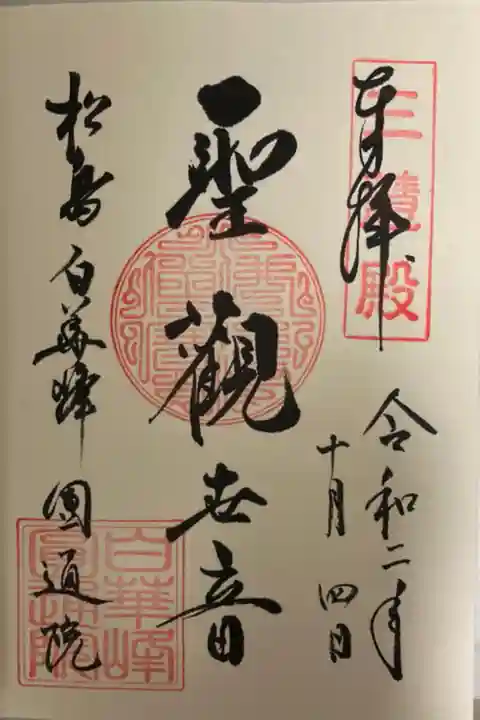 奉拝
三慧殿
令和二年
十月四日
聖観世音
松島白華峰圓通院
白華峰
圓通院